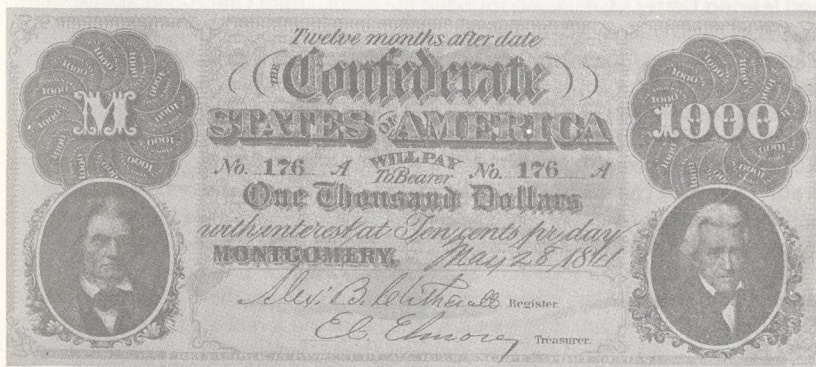 Twelve months after date
THE Confederate
STATES OF AMERICA
M
1000
No. 176 A WILL PAY No. 176 A
To Bearer
One Thousand Dollars
with interest at Ten cents pr. day
MONTGOMERY, May 28, 1861
Alex. B. Clitherall Register.
E.C. Elmore, Treasurer.